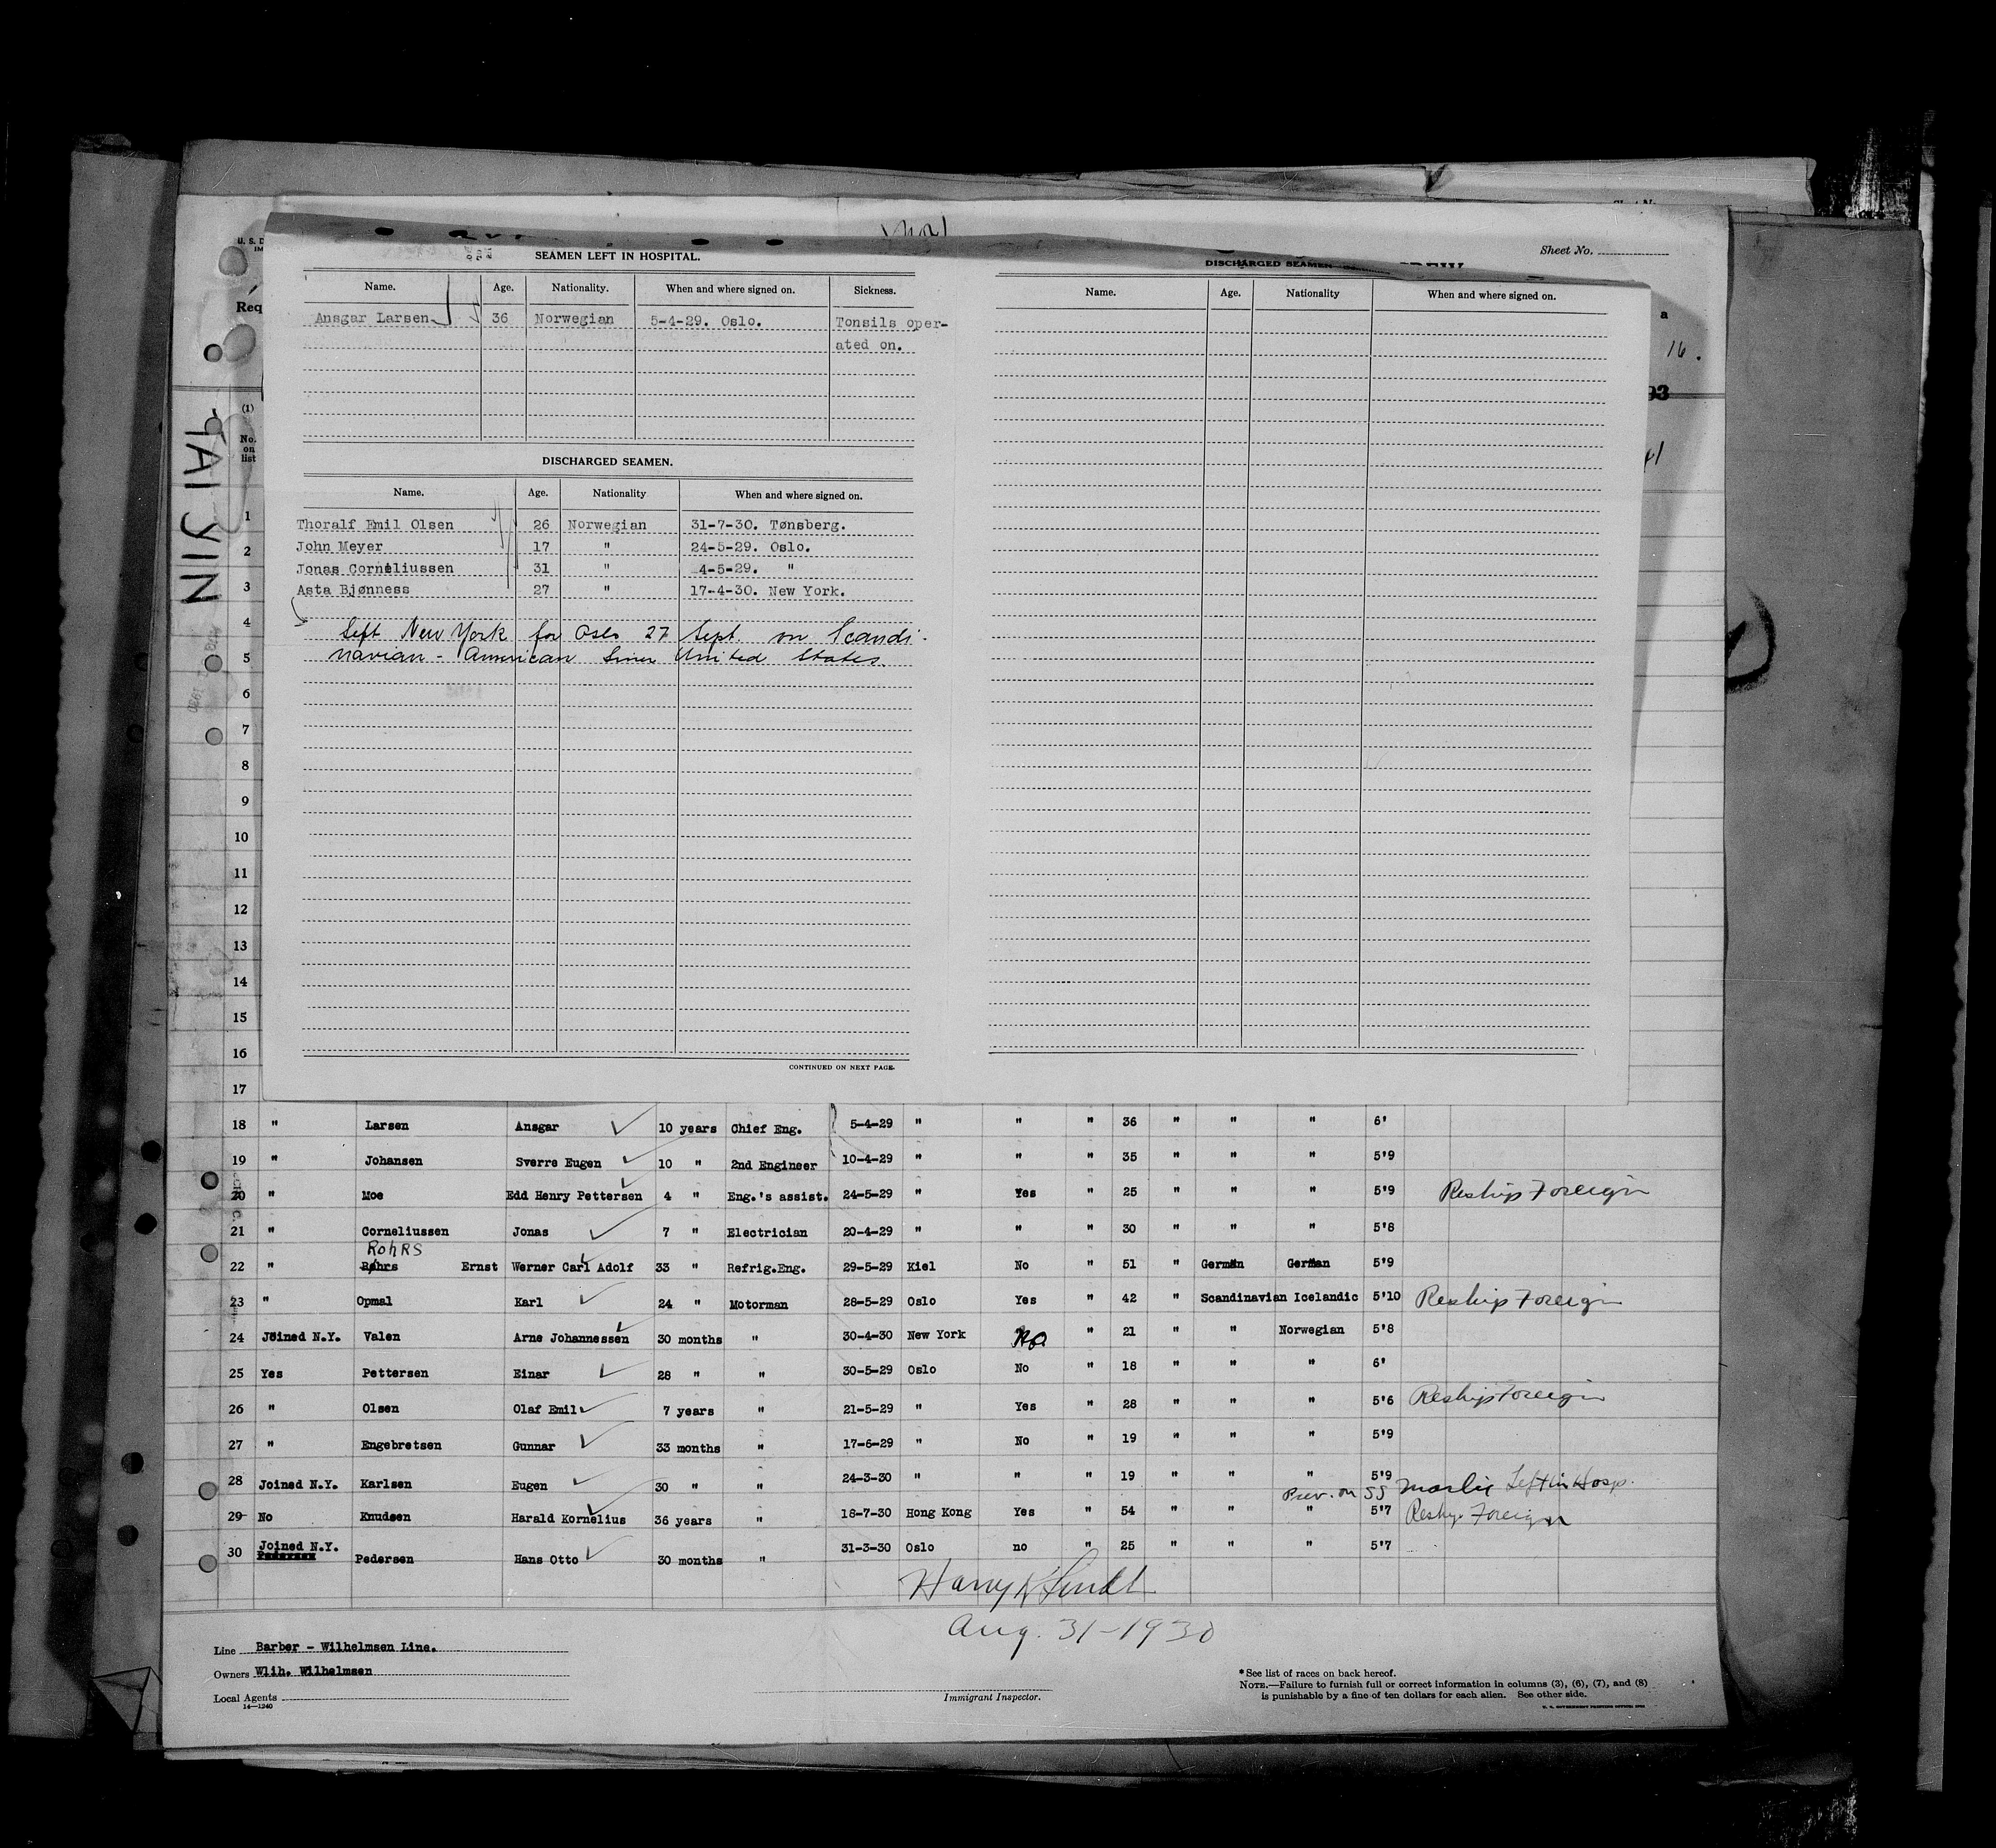 Sheet No.
U. S. D
SEAMEN LEFT IN HOSPITAL.
Name. Age. Nationality. When and where signed on. Sickness.
Ansgar Larsen 36 Norwegian 5-4-29. Oslo. Tonsils oper-
ated on.
DISCHARGED SEAMEN.
Name. Age. Nationality When and where signed on.
Thoralf Emil Olsen 26 Norwegian 31-7-30. Tønsberg.
John Meyer 17 " 24-5-29. Oslo.
Jonas Corneliussen 31 " 4-5-29. "
Asta Bjønness 27 " 17-4-30. New York.
Left New York for Oslo 27 Sept. on Scandi-
navian-American Liner United States.
CONTINUED ON NEXT PAGE.
DISCHARGED SEAMEN
Name. Age. Nationality When and where signed on.
Req
a
16.
93
41
TAI YIN
(1)
No.
on
list
1
2
3
4
5
6
7
8
9
10
11
12
13
14
15
16
17
18 " Larsen Ansgar 10 years Chief Eng. 5-4-29 " " " 36 " " " 6'
19 " Johansen Sverre Eugen 10 " 2nd Engineer 10-4-29 " " " 35 " " " 5'9
20 " Moe Edd Henry Pettersen 4 " Eng.'s assist. 24-5-29 " Yes " 25 " " " 5'9 Reship Foreign
21 " Corneliussen Jonas 7 " Electrician 20-4-29 " " " 30 " " " 5'8
RohRS
22 " Røhrs Ernst Werner Carl Adolf 33 " Refrig.Eng. 29-5-29 Kiel No " 51 " German German 5'9
23 " Opmal Karl 24 " Motorman 28-5-29 Oslo Yes " 42 " Scandinavian Icelandic 5'10 Reship Foreign
24 Joined N.Y. Valen Arne Johannessen 30 months " 30-4-30 New York No " 21 " " Norwegian 5'8
25 Yes Pettersen Einar 28 " " 30-5-29 Oslo No " 18 " " " 6'
26 " Olsen Olaf Emil 7 years " 21-5-29 " Yes " 28 " " " 5'6 Reship Foreign
27 " Engebretsen Gunnar 33 months " 17-6-29 " No " 19 " " " 5'9
28 Joined N.Y. Karlsen Eugen 30 " " 24-3-30 " " " 19 " " " 5'9
Prev. on SS Left in Hosp.
29 No Knudsen Harald Kornelius 36 years " 18-7-30 Hong Kong Yes " 54 " " " 5'7 Reshp. Foreign
30 Joined N.Y. Pedersen Hans Otto 30 months " 31-3-30 Oslo no " 25 " " " 5'7
Aug. 31-1930
Line Barber - Wilhelmsen Line.
Owners Wlih. Wilhelmsen
Local Agents
14—1240
Immigrant Inspector.
* See list of races on back hereof.
NOTE.—Failure to furnish full or correct information in columns (3), (6), (7), and (8)
is punishable by a fine of ten dollars for each alien. See other side.